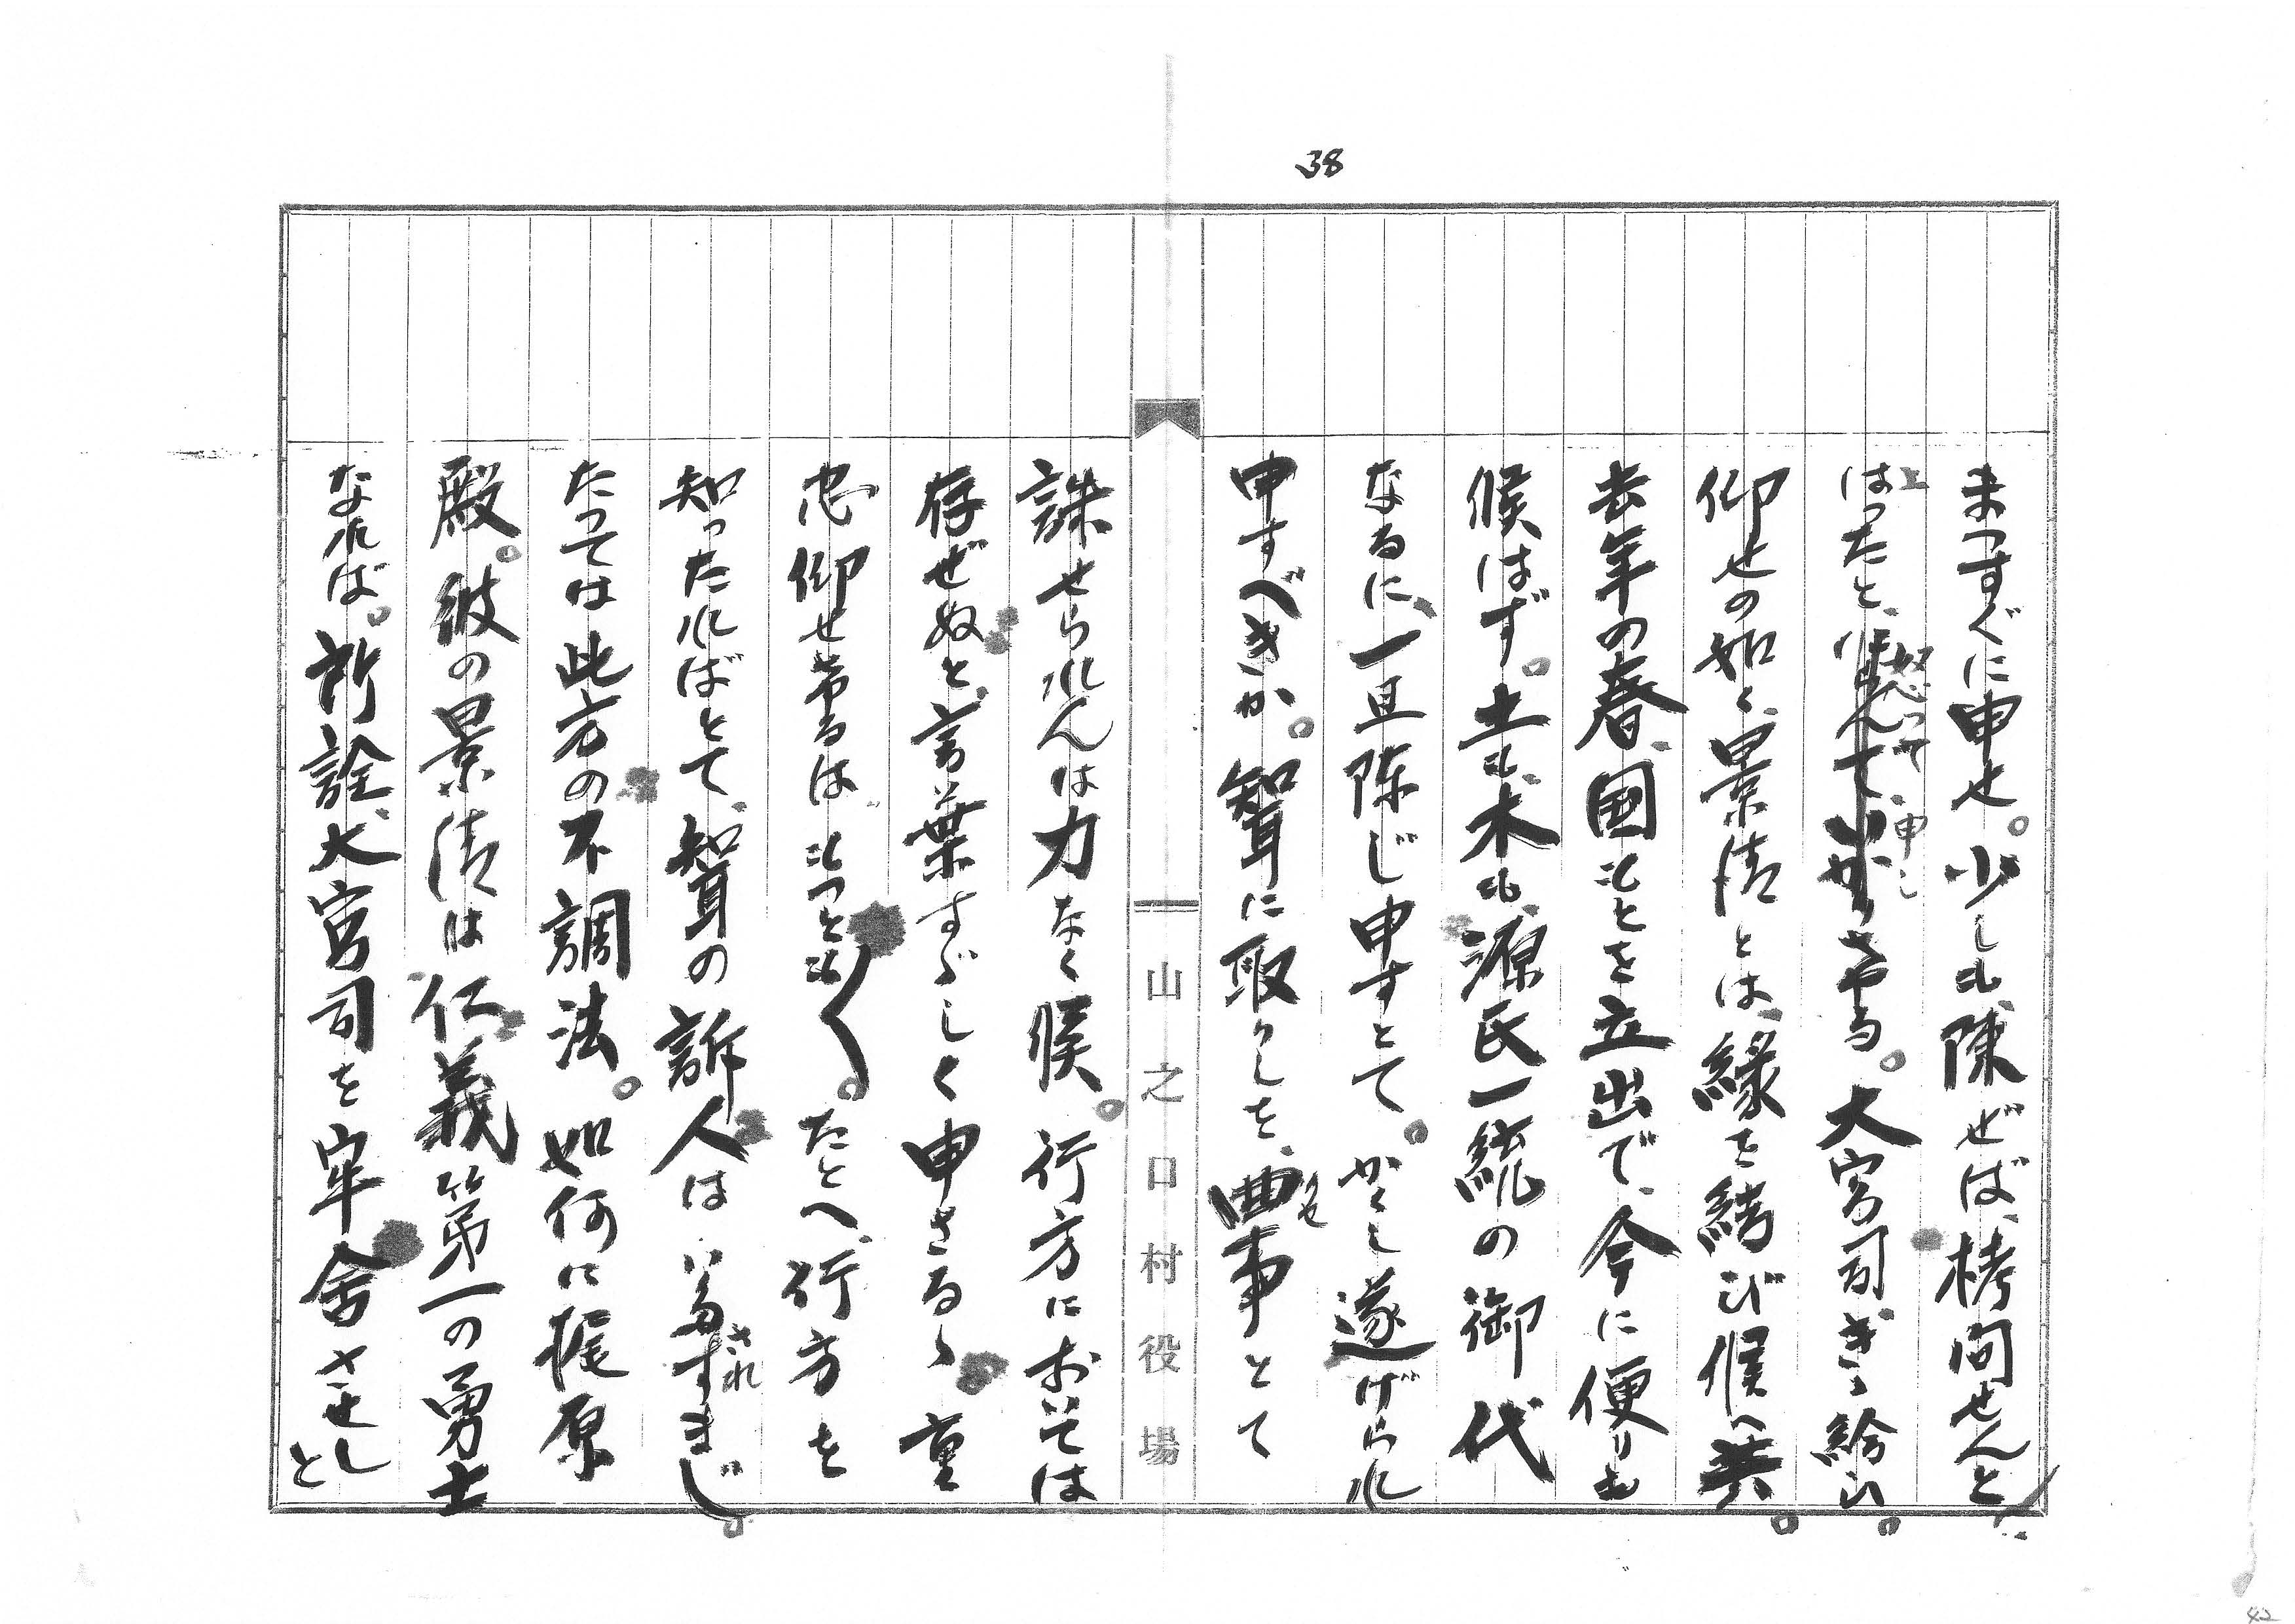 38
まつすぐに申せ。少しも陳ぜば、拷問せんと
はったと、怒って申し さるゝ。大宮司きゝ給ひ。
仰せの如く、景清とは、縁を結び候へ共。
去年の春、国もとを立出で、今に便りも
候はず。土も木も、源氏一統の御代
なるに、一旦陳じ申すとて。かくし遂げられ
申すべきか。聟に取りしを、曲事とて
くせ
山之口村役場
誅せられんは力なく候。行方におゐては
存ぜぬと、言葉すゞしく申さるゝ、重
忠仰せ
るはもつとも〱。たとへ、行方を
知ったればとて、聟の訴人は、
まじ。
され
たっては此方の不調法。如何に梶原
殿。彼の景清は、仁義第一の勇士
なれば。所詮、大宮司を牢舎させしと
42